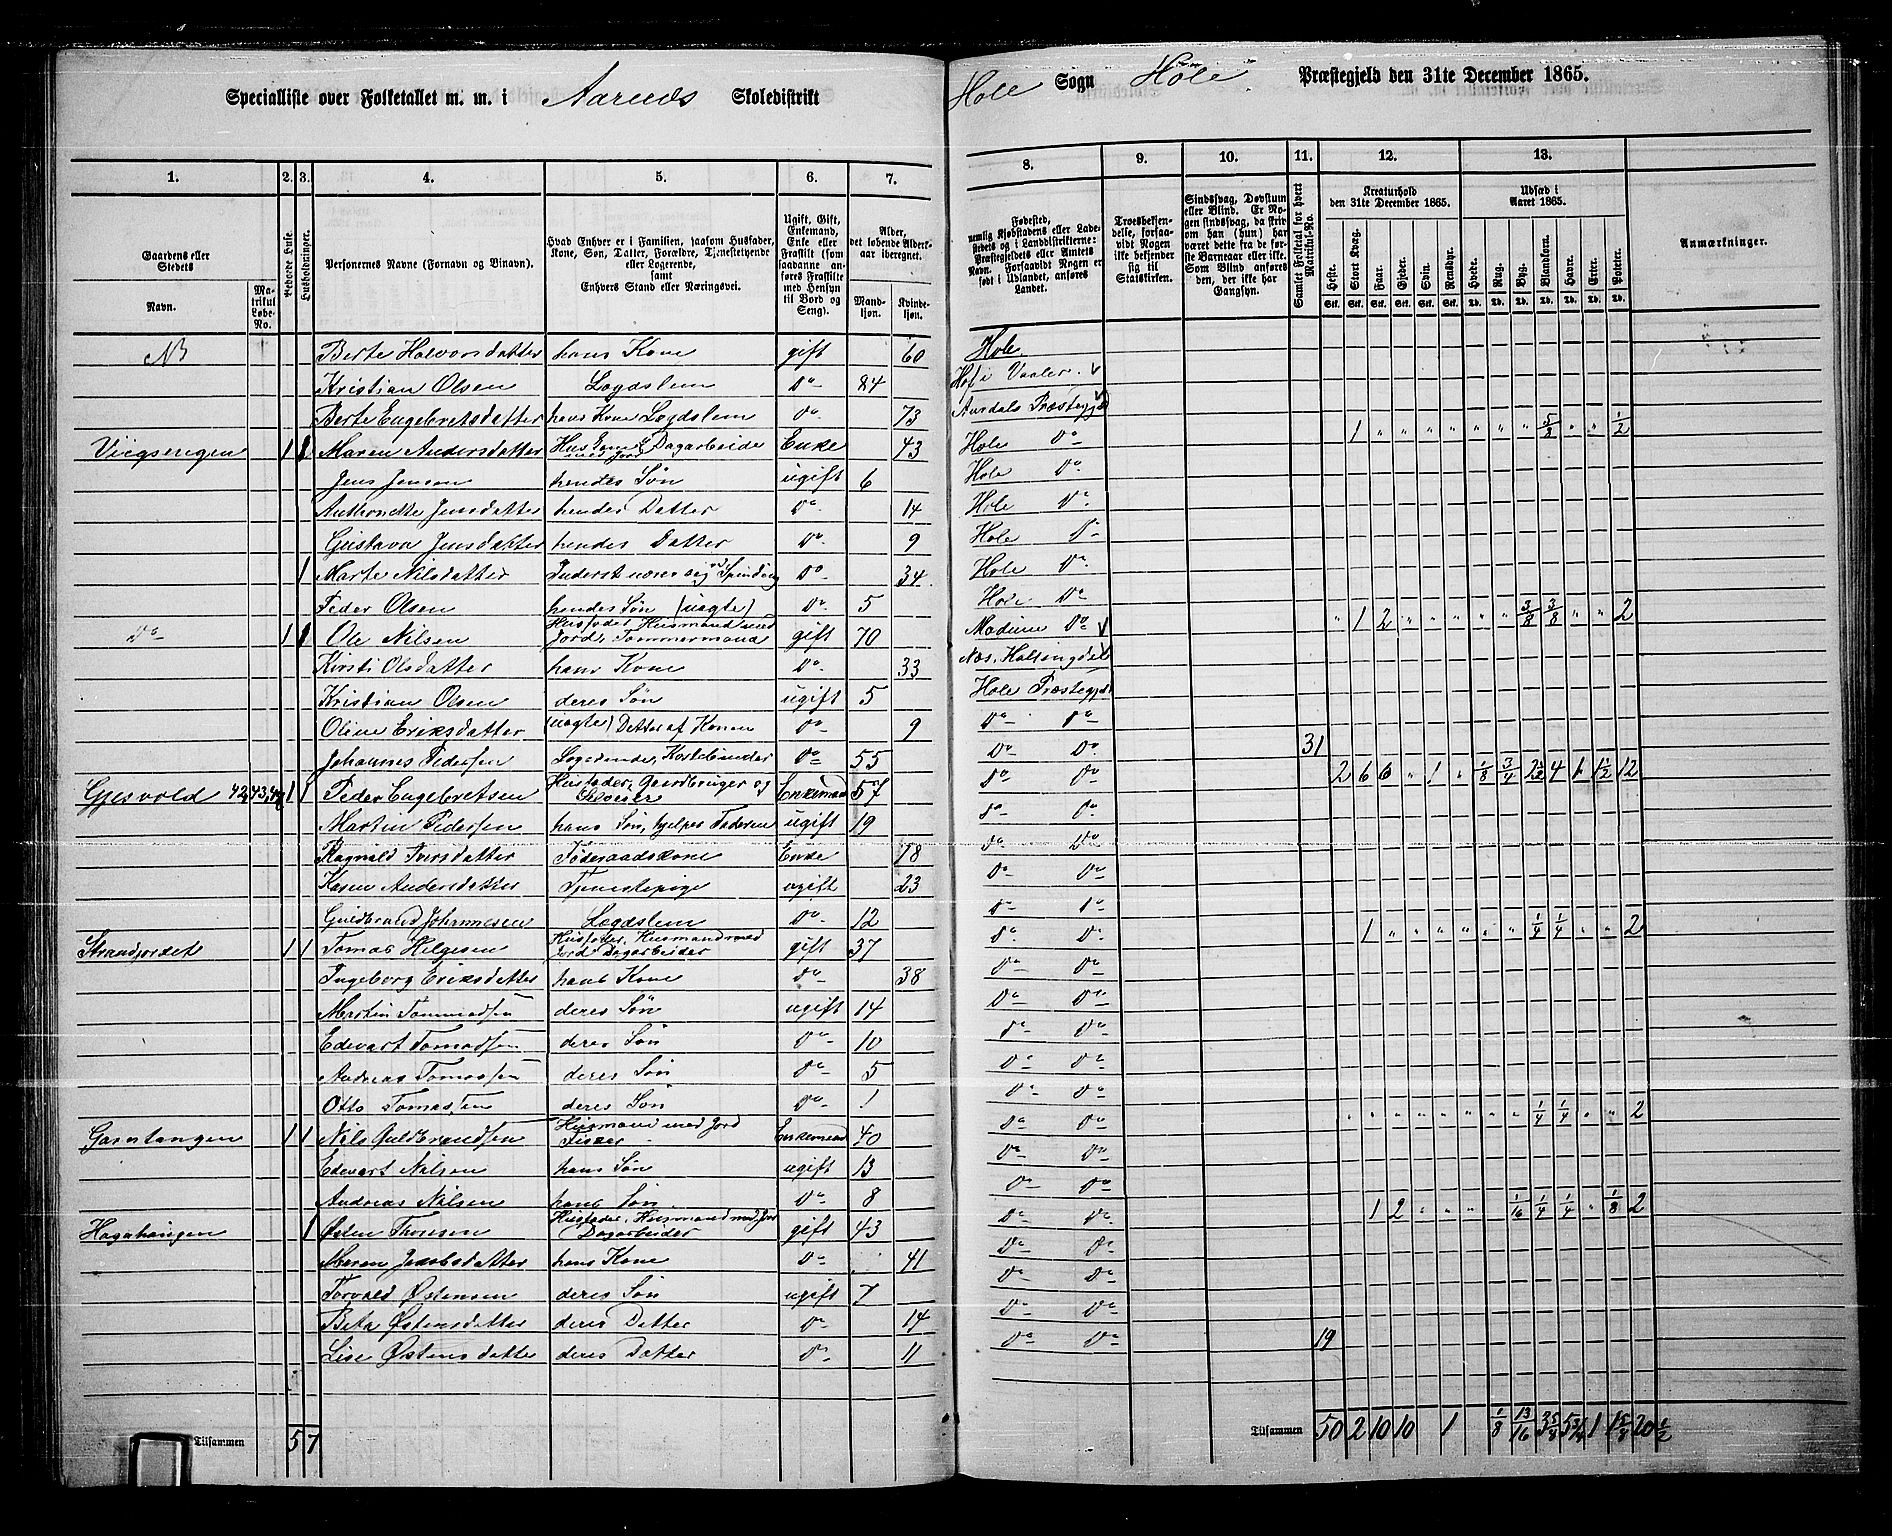 Specialliste over Folketallet m. m. i Aarnæs Skoledistrikt Hole Sogn Hole Præstegjeld den 31te December 1865.
1. 2. 3. 4. 5. 6. 7. 8. 9. 10. 11. 12. 13.
Gaardens eller Stedets
Navn.
Matrikul Løbe-No.
Beboede Huse.
Husholdninger.
Personernes Navne (Fornavn og Binavn).
Hvad Enhver er i Familien, saasom Husfader, Kone, Søn, Datter, Forældre, Tjenestetyende eller Logerende, samt Enhvers Stand eller Næringsvei.
Ugift, Gift, Enkemand, Enke eller Fraskilt (som saadanne anføres Fraskilte med Hensyn til Bord og Seng).
Alder, det løbende Aldersaar iberegnet.
Mandkjøn.
Kvindekjøn.
Fødested, nemlig Kjøbstadens eller Ladestedets og i Landdistrikterne: Præstegjeldets eller Amtets Navn. Forsaavidt Nogen er født i Udlandet, anføres Landet.
Troesbekjendelse, forsaavidt Nogen ikke bekjender sig til Statskirken.
Sindssvag, Døvstum eller Blind. Er Nogen sindssvag, da skrives om han (hun) har været dette fra de første Barneaar eller ikke. Som Blind anføres den, der ikke har Gangsyn.
Samlet Folketal for hvert Matrikul-No.
Kreaturhold den 31te December 1865.
Heste. Stort Kvæg. Faar. Gjeder. Svin. Rensdyr.
Stk. Stk. Stk. Stk. Stk. Stk.
Udsæd i Aaret 1865.
Hvede. Rug. Byg. Blandkorn. Havre. Erter. Poteter.
Td. Td. Td. Td. Td. Td. Td.
Anmærkninger.
Berte Halvorsdatter hans Kone gift 60 Hole
Kristian Olsen Lægdslem Do 84 Hof i Vaaler
Berte Engebretsdatter hans Kone Lægdslem Do 73 Aurdals Præstegjd
1 1 Maren Andersdatter med Jord Dagarbeide Enke 43 Hole Do 1 " " " " " " " 5/8 " " 1/2
Jens Jensen hendes Søn ugift 6 Hole Do
Jensdatter hendes Datter Do 14 Hole Do
Gustava Jensdatter hendes Datter Do 9 Hole Do
1 Marte Nilsdatter Inderst nærer sig Spinding Do 34 Hole Do
Peder Olsen hendes Søn (uægte) Do 5 Hole Do
Do 1 1 Ole Nilsen Husfader Husmand med Jord, Tømmermand gift 70 Modum Do " 1 2 " " " " " 3/8 3/8 " " 2
Kirsti Olsdatter hans Kone Do 33 Næs, Hallingdal
Kristian Olsen deres Søn ugift 5 Hole Præstegjd
Oline Eriksdatter (uægte) Datter af Konen Do 9 Do Do
Johannes Pedersen Logerende, Kostebinder Do 55 Do Do 31
Gjesvold 42,43, 1 1 Peder Engebretsen Husfader, Gaardbruger og Selveier Enkemand 57 Do Do 2 6 6 " 1 " 1/8 3/4 2 1/2 4 1 1 1/2 12
Martin Pedersen hans Søn, hjelper Faderen ugift 19 Do Do
Ragnild Iversdatter Føderaadskone Enke 78 Do Do
Karen Andersdatter Tjenestepige ugift 23 Do Do
Guldbrand Johannesen Lægdslem Do 12 Do Do
Strandjordet 1 1 Tomas Helgesen Husfader, Husmand med Jord Dagarbeider gift 37 Do Do 1 " " " " " " 1/4 1/4 " " 2
Ingeborg Eriksdatter hans Kone Do 38 Do Do
Martin Tommassen deres Søn ugift 14 Do Do
Edevart Tomassen deres Søn Do 10 Do Do
Andreas Tomassen deres Søn Do 5 Do Do
Otto Tomassen deres Søn Do 1 Do Do
Garntangen 1 1 Nils Guldbrandsen Husmand med Jord Fisker Enkemand 40 Do Do " " " " " " " " 1/4 1/4 " " 2
Edevart Nilsen hans Søn ugift 13 Do Do
Andreas Nilsen hans Søn Do 8 Do Do
1 Østen Thoresen Husfader, Husmand med Jord Dagarbeider gift 43 Do Do 1 2 " " " 1/16 1/4 1/4 " 1/8 2
Maren Jacobsdatter hans Kone Do 41 Do Do
Torvald Østensen deres Søn ugift 7 Do Do
Østensdatter deres Datter Do 14 Do Do
Lise Østensdatter deres Datter Do 11 Do Do 19
Tilsammen 5 7
Tilsammen 50 2 10 10 1 1/8 13/16 3 5/8 5 3/4 1 1 5/8 20 1/2